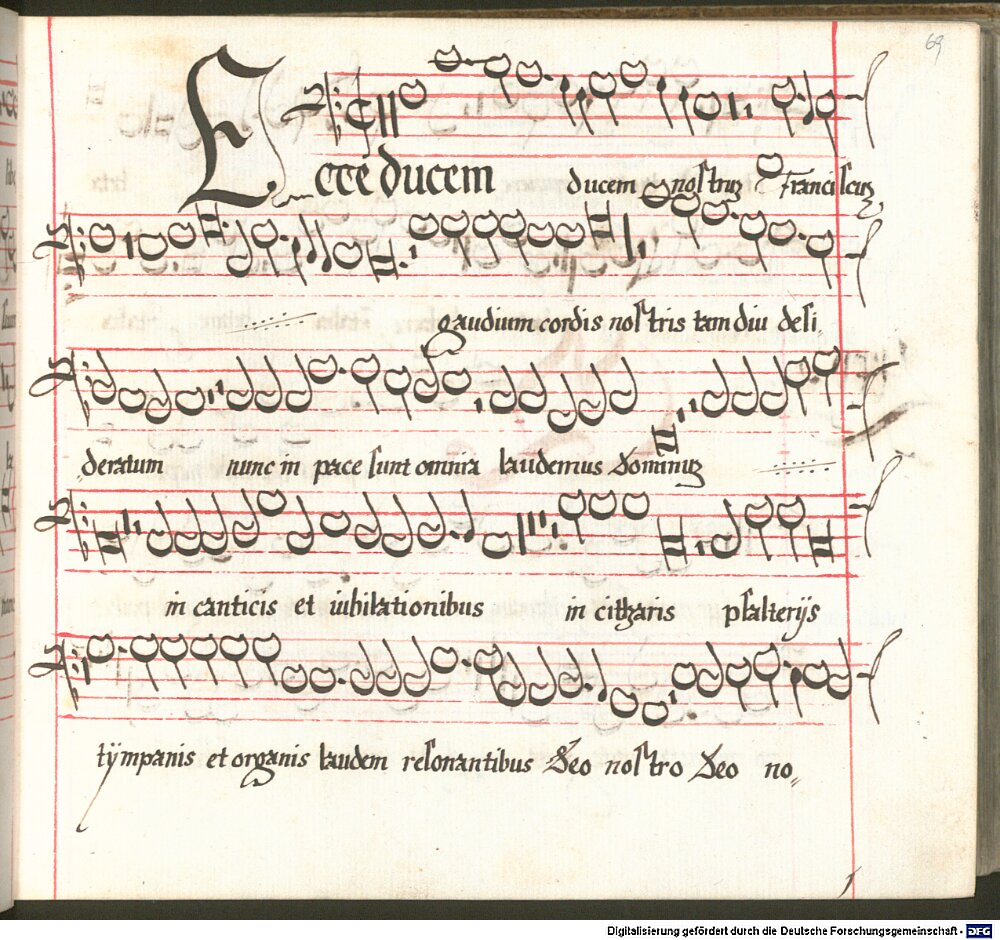 69
Ecce ducem ducem nostrum Franciscum
gaudium cordis nostris tam diu desi
deratum nunc in pace sunt omnia laudemus Dominum
in canticis et iubilationibus in citharis psalterijs
tÿmpanis et organis laudem resonantibus Deo nostro Deo no„
Digitalisierung gefördert durch die Deutsche Forschungsgemeinschaft - DFG